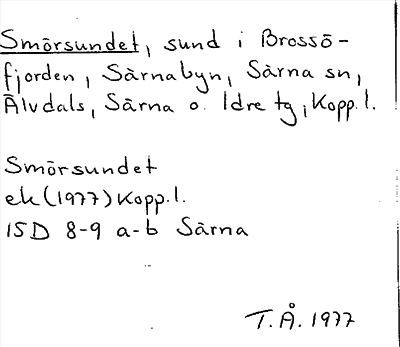 Smörsundet, sund i Brossö-
fjorden, Särnabyn, Särna sn,
Älvdals, Särna o. Idre tg, Kopp.l.
Smörsundet
ek (1977) Kopp.l.
15D 8-9 a-b Särna
T.Å. 1977